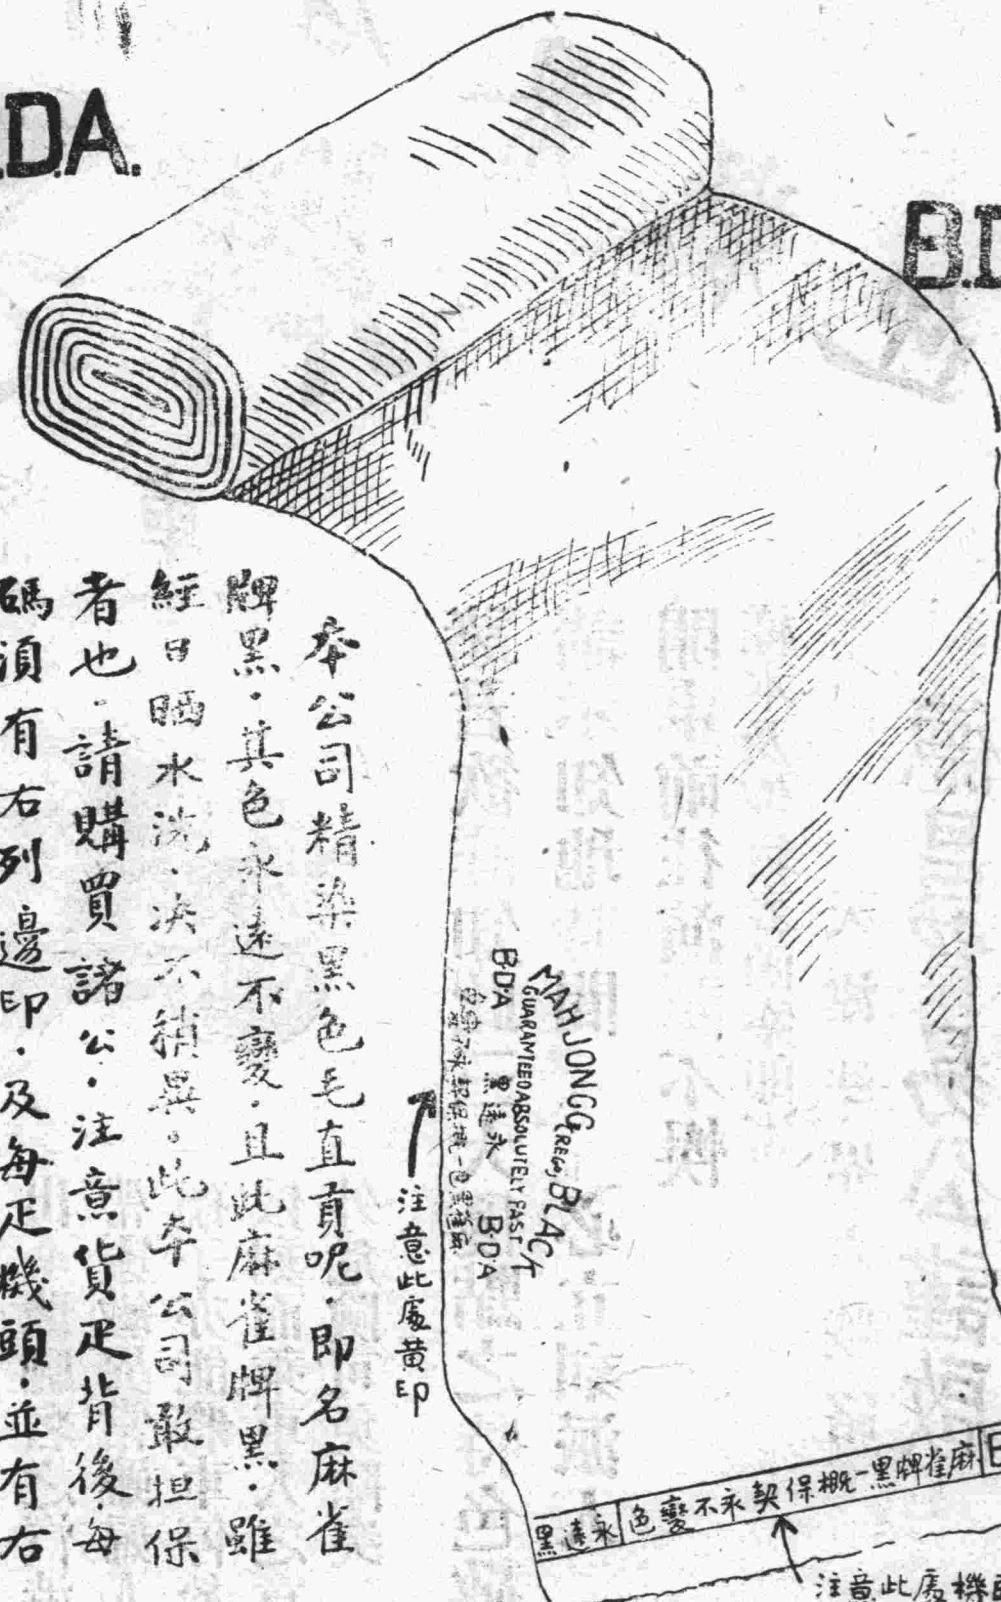 .D.A.
B.D
本公司精染黑色毛直貢呢·即名麻雀
牌黑·其色永遠不變·且此麻雀牌黑·雖
經日晒水洗·决不稍異·此本公司敢担保
者也·請購買諸公·注意貨疋背後·每
碼須有右列邊印·及每疋機頭·並有右
注意此處黄印
MAHJONGG (REGD) BLACK
GUARANTEED ABSOLUTELY FAST
B·D·A 黑遠永 B·D·A
麻雀牌黑一概保契永不變色
永遠黑
注意此處機